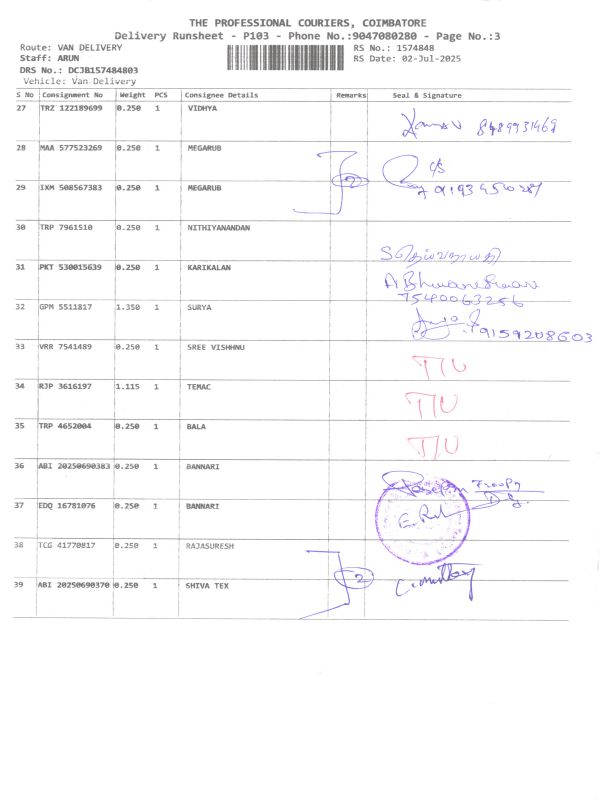 THE PROFESSIONAL COURIERS, COIMBATORE
Delivery Runsheet - P103 - Phone No.:9047080280 - Page No.:3
Route: VAN DELIVERY RS No.: 1574848
Staff: ARUN RS Date: 02-Jul-2025
DRS No.: DCJB157484803
Vehicle: Van Delivery
S No Consignment No Weight PCS Consignee Details Remarks Seal & Signature
27 TRZ 122189699 0.250 1 VIDHYA
28 MAA 577523269 0.250 1 MEGARUB
2 c/s
29 IXM 508567383 0.250 1 MEGARUB
30 TRP 7961510 0.250 1 NITHIYANANDAN
31 PKT 530015639 0.250 1 KARIKALAN
A Bhuvaneswari
7540063256
32 GPM 5511817 1.350 1 SURYA
9159208603
33 VRR 7541489 0.250 1 SREE VISHHNU T/U
34 RJP 3616197 1.115 1 TEMAC T/U
35 TRP 4652004 0.250 1 BALA T/U
36 ABI 20250690383 0.250 1 BANNARI
37 EDQ 16781076 0.250 1 BANNARI
38 TCG 41770817 0.250 1 RAJASURESH
2
39 ABI 20250690370 0.250 1 SHIVA TEX